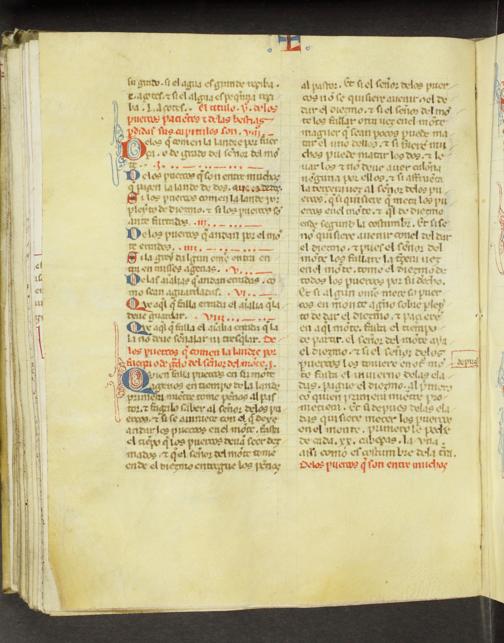 su grado. si el agua es grande reçiba .
c. açotes. & si el agua es pequeña reçi
ba . l. açotes. El titulo . v. de los
puercos paçientes & de las bestias
pdidas sus capitulos son . viii.
Delos q̃ comen la lande por fuer
ça . o de grado del señor del mõ
te . i.
Delos puercos q̃ son entre muchos
Si los puercos comen la lande por
pleyto de diezmo. & si los puercos
ante . iii.
Delos puercos q̃ andan por el mõ
te errados. . iiii.
Si la grey dalgun om̃e entra en
mi en mieses agenas . v.
Delas aĩalias q̃ andan erradas . co
mo sean aguardadas. . vi.
Que aql̃ q̃ falla errada el aĩalia q̃ la
deue guardar. . viii.
Que aql̃ q̃ falla el aĩalia errada q̃ la
la nõ deue señalar ni tresquilar. De
los puercos q̃ comen la lande por
fuerça o de grado del señor del mõte. i.
Quien falla puercos en su monte
agenos en tiempo de la lande
primera mientre tome peños al pas
tor. & fagalo saber al señor delos pu
ercos. & si se auiniere con el q̃ dexe
andar los puercos en el mõte. fasta
el tiẽpo q̃ los puercos deuẽ seer dez
mados. & q̃l señor del mõte tome
ende el diezmo entregue los peños
al pastor. Et si el señor delos puer
cos nõ se quisiere auenir nol de
dar el diezmo. & si el señor del mõ
te los fallare otra uez en el mõte
maguer q̃ sean pocos puede ma
tar el uno dellos. & si fueren mu
chos puede matar los dos. & le
uar los & nõ deue auer calonna
ninguna por ellos. & si
la terçera uez al señor delos pu
ercos. q̃ si quisiere q̃ metra los pu
ercos en el mõte. & q̃l de diezmo
ende segund la costumbre. Et si se
nõ quisiere auenir cõ el del dar
el diezmo. & pues el señor del
mõte los fallare la terçera uez
en el mõte. tome el diezmo de
todos los puercos por su derecho.
Et si algun om̃e mete su puer
cos en monte ageno sobre pley
to de dar el diezmo. & paçieren
en aql̃ mõte. fasta el tiempo
de partir. el señor del mõte aya
el diezmo. & si el señor delos
puercos los touiere en el mõ
te fasta el inuierno delas ela
das. pague el diezmo. al prime
ro quien primera mientre pro
metiera. Et si despues delas ela
das quisiere meter los puercos
en el monte . primero le peche
de cada . xx. cabeças . la una .
assi como es costumbre dela tr̃a.
Delos puercos q̃ son entre muchos